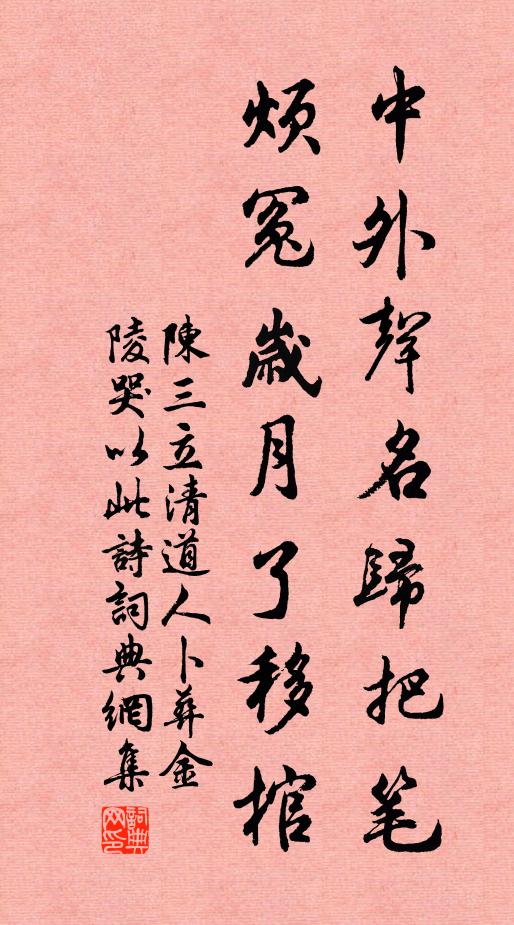 中外聲名歸把笔
煩冤歲月了移棺
陳三立清道人卜葬金
陵哭以此詩詞典網集
詞典网印